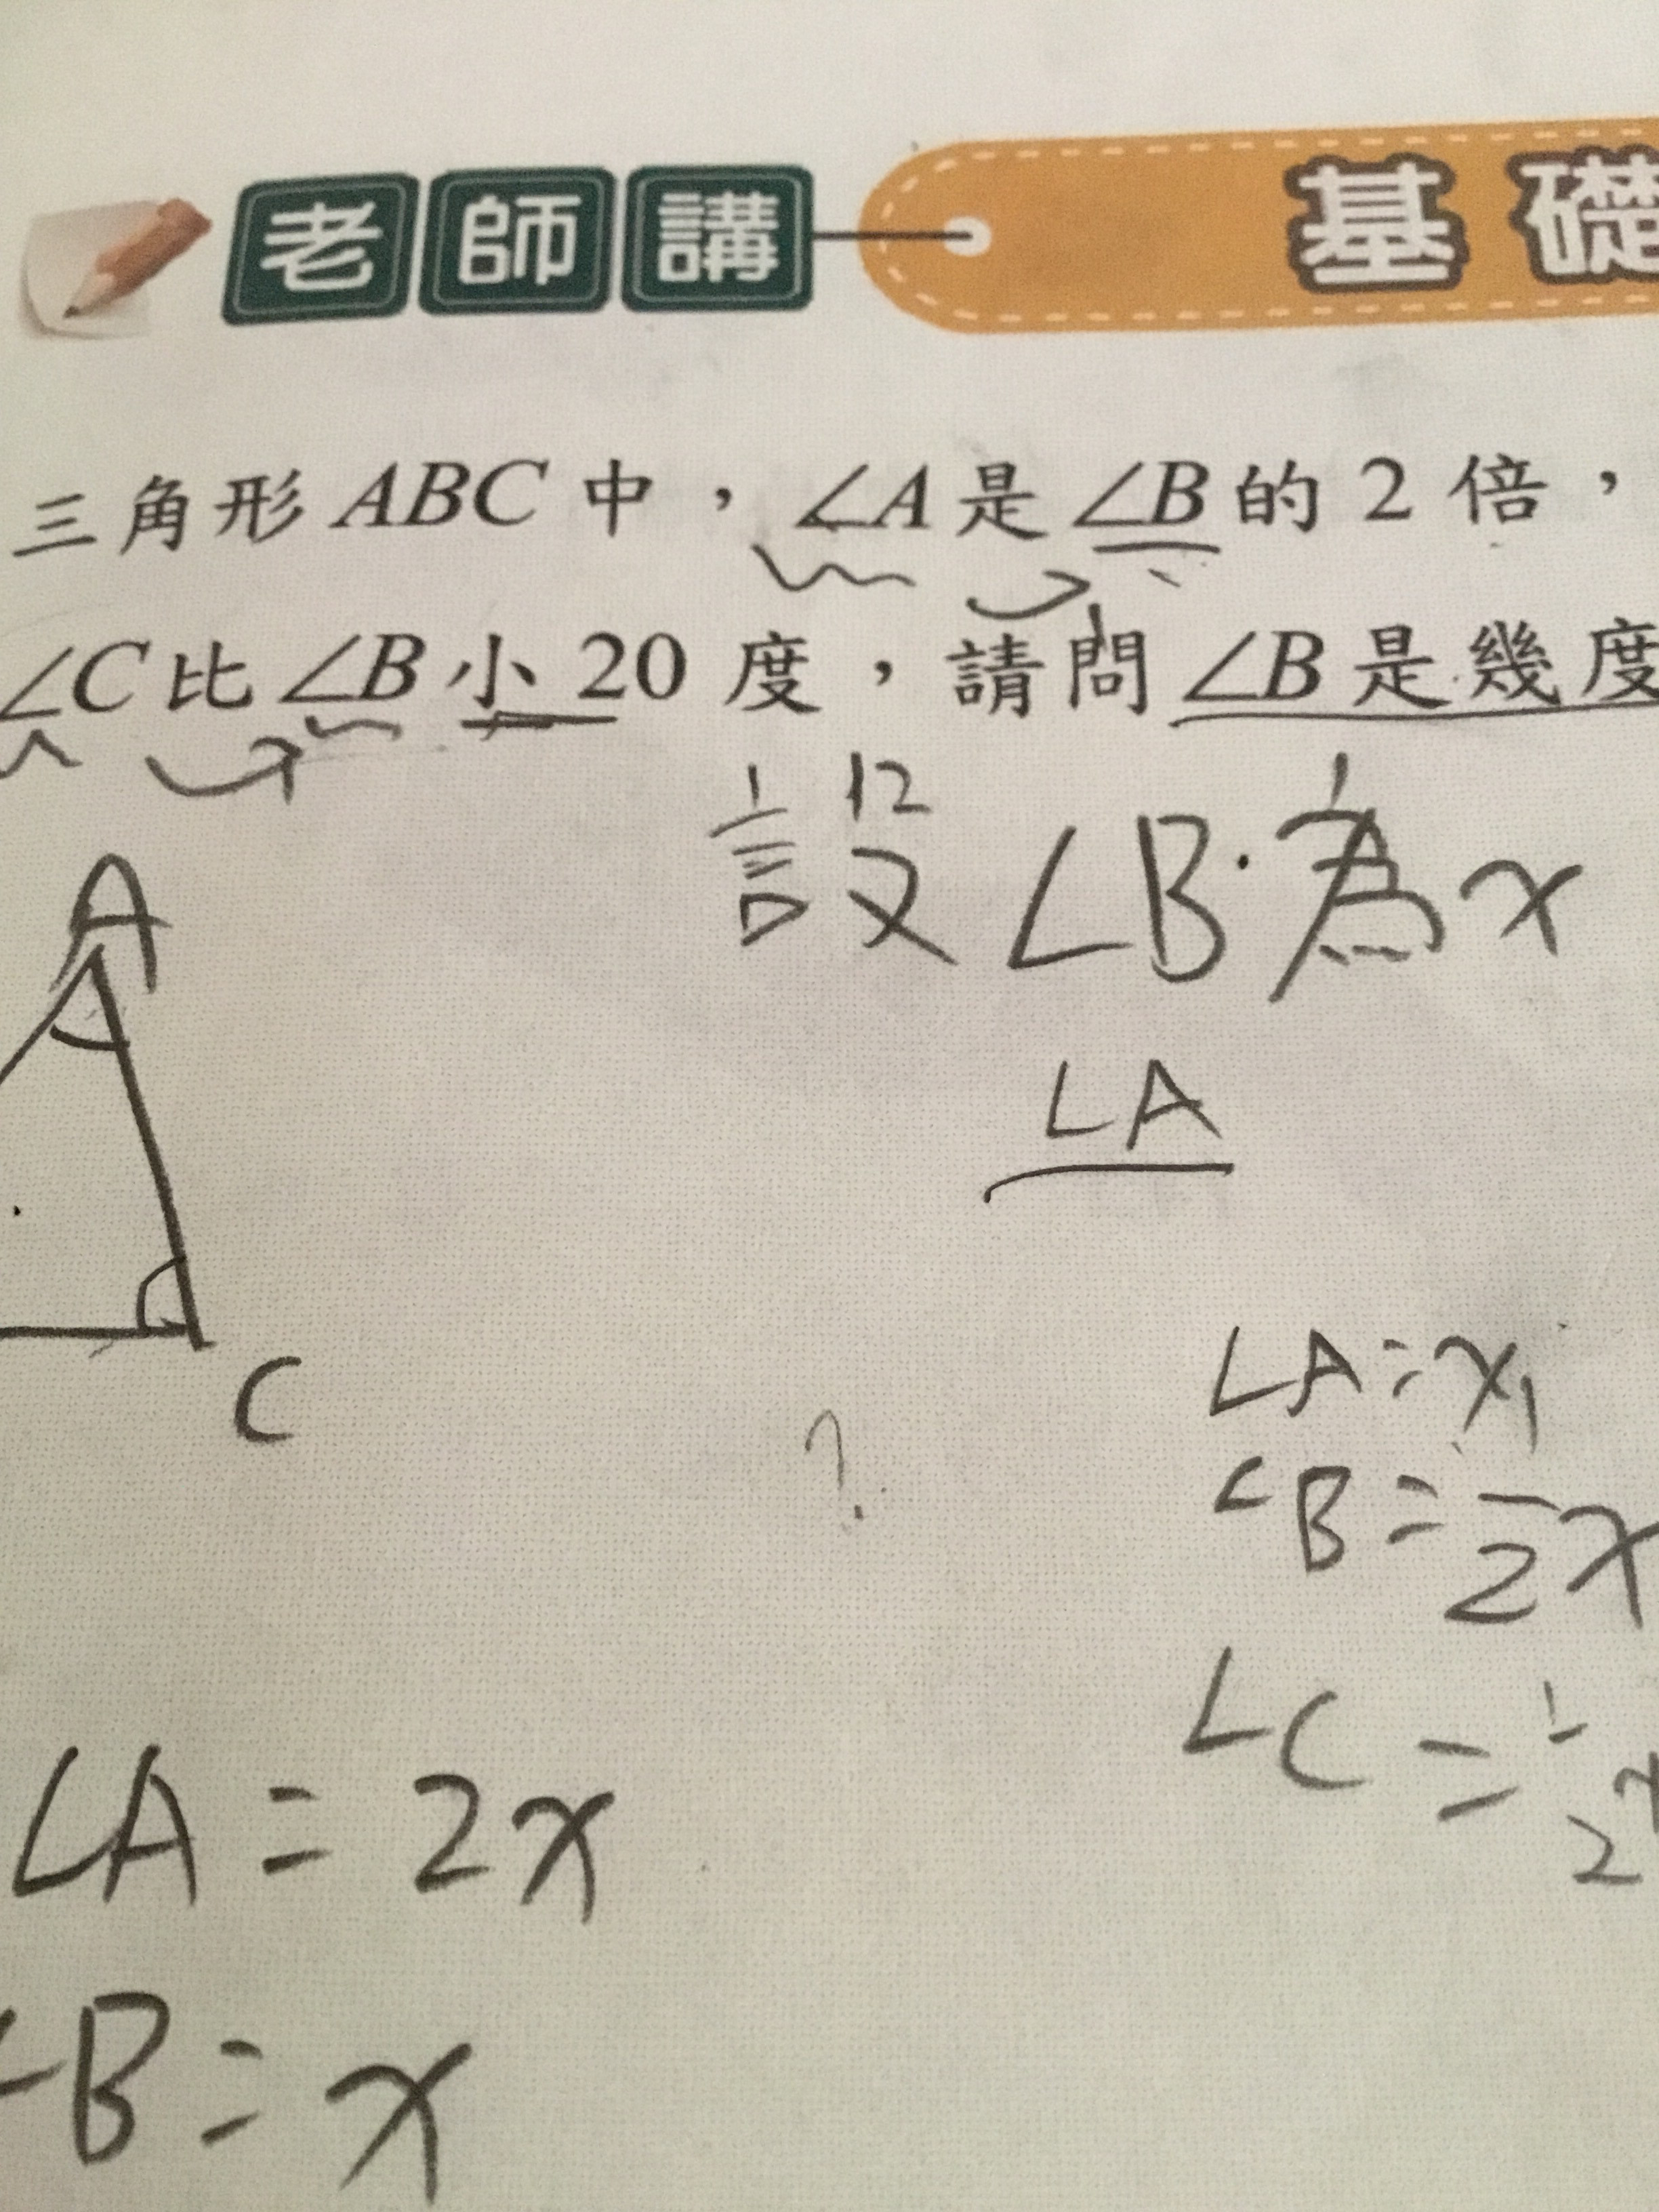 老師講 基礎
三角形ABC中，∠A是∠B的2倍，
∠C比∠B小20度，請問∠B是幾度
設∠B為x
A
∠A
C
∠A=x
∠B=
2x
∠C=
?
∠A=2x
∠B=x